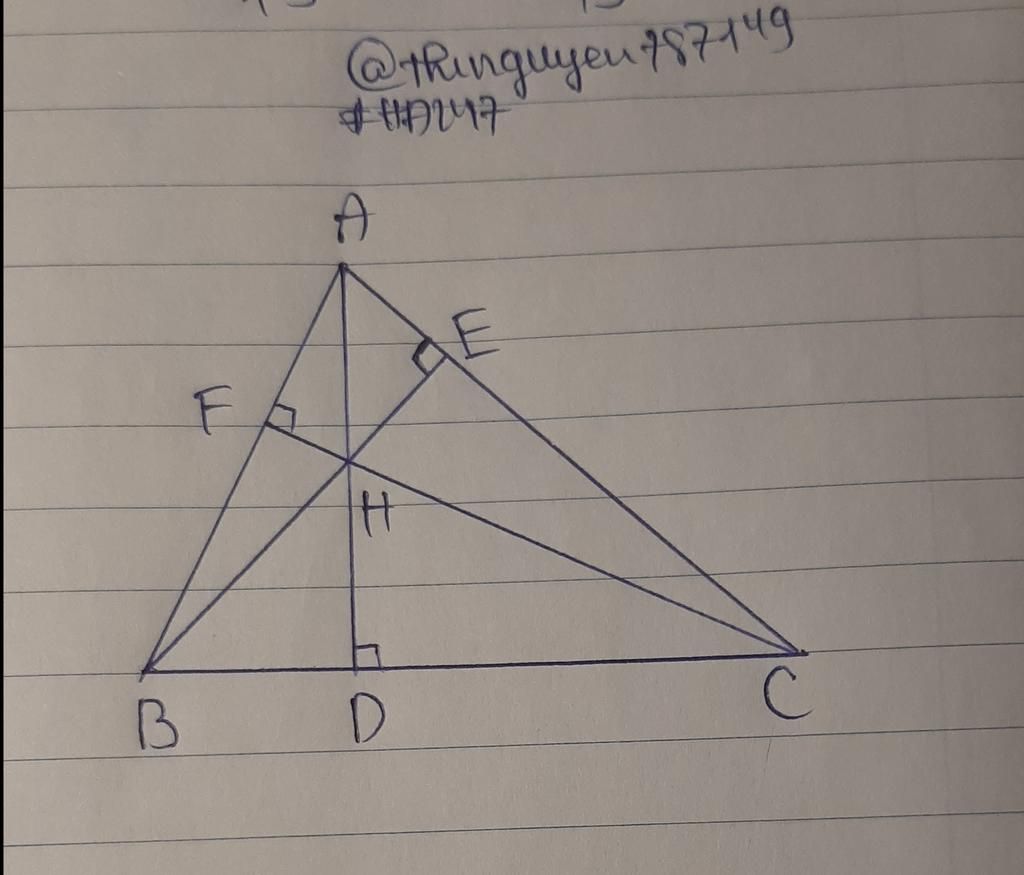 @thinguyen787149
#HĐ247
A
E
F
H
B
D
C